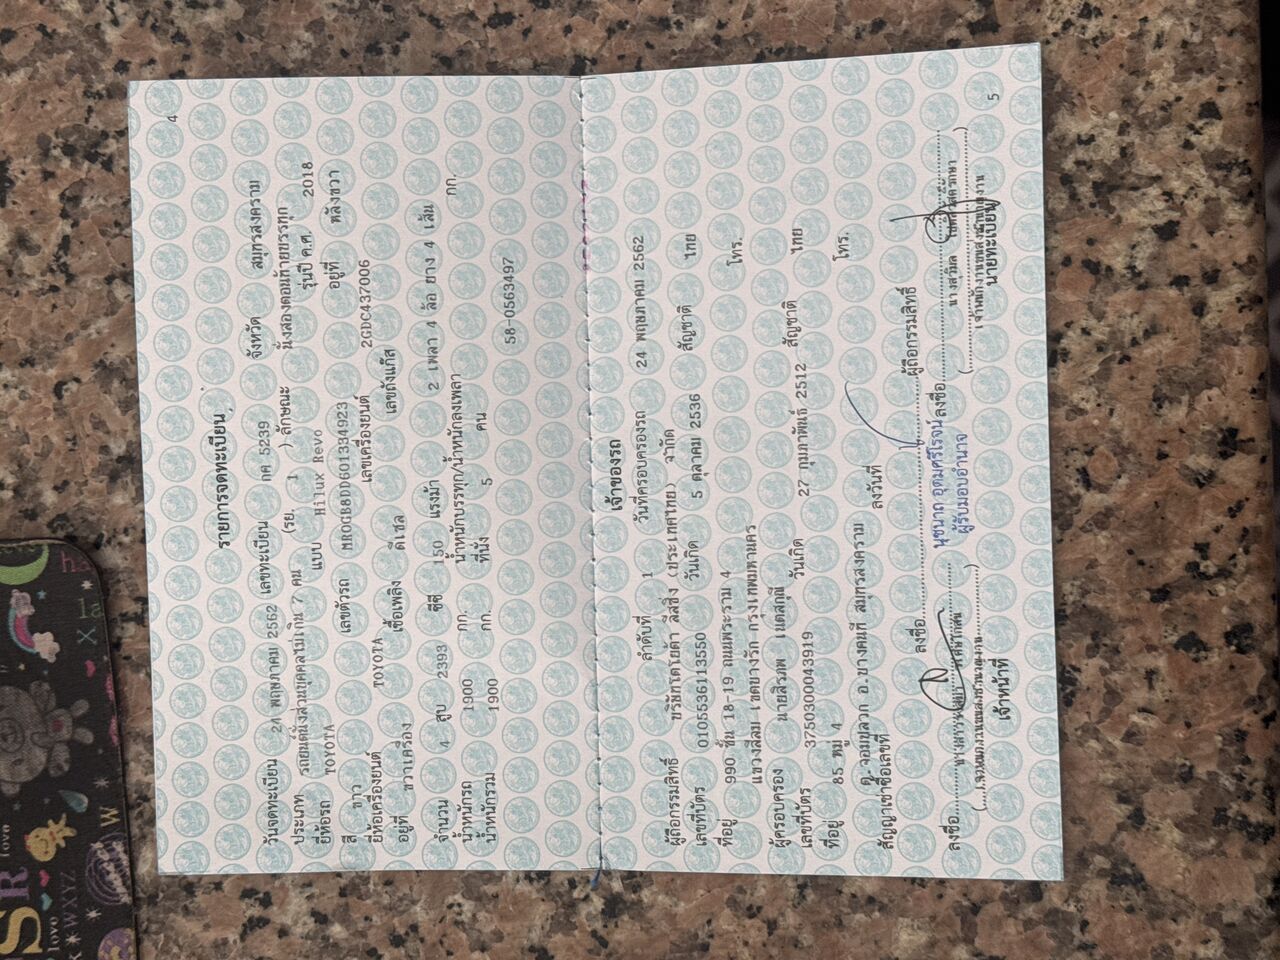 4
รายการจดทะเบียน
วันจดทะเบียน 24 พฤษภาคม 2562 เลขทะเบียน กค 5239 จังหวัด สมุทรสงคราม
ประเภท รถยนต์นั่งส่วนบุคคลไม่เกิน 7 คน (รย. 1 ) ลักษณะ นั่งสองตอนท้ายบรรทุก
ยี่ห้อรถ TOYOTA แบบ Hilux Revo รุ่นปี ค.ศ. 2018
สี ขาว เลขตัวรถ MR0GB8DD601334923 อยู่ที่ หลังขวา
ยี่ห้อเครื่องยนต์ TOYOTA เลขเครื่องยนต์ 2GDC437006
อยู่ที่ ขวาเครื่อง เชื้อเพลิง ดีเซล เลขถังแก๊ส
จำนวน 4 สูบ 2393 ซีซี 150 แรงม้า 2 เพลา 4 ล้อ ยาง 4 เส้น
น้ำหนักรถ 1900 กก. น้ำหนักบรรทุก/น้ำหนักลงเพลา กก.
น้ำหนักรวม 1900 กก. ที่นั่ง 5 คน
58-0563497
เจ้าของรถ
ลำดับที่ 1 วันที่ครอบครองรถ 24 พฤษภาคม 2562
ผู้ถือกรรมสิทธิ์ บริษัทโตโยต้า ลีสซิ่ง (ประเทศไทย) จำกัด
เลขที่บัตร 0105536113550 วันเกิด 5 ตุลาคม 2536 สัญชาติ ไทย
ที่อยู่ 990 ชั้น 18-19 ถนนพระราม 4
แขวงสีลม เขตบางรัก กรุงเทพมหานคร โทร.
ผู้ครอบครอง นายสิรภพ เนตสกุณี
เลขที่บัตร 3750300043919 วันเกิด 27 กุมภาพันธ์ 2512 สัญชาติ ไทย
ที่อยู่ 85 หมู่ 4
ต.จอมปลวก อ.บางคนที สมุทรสงคราม โทร.
สัญญาเช่าซื้อเลขที่ ลงวันที่
ลงชื่อ ผู้ถือกรรมสิทธิ์
นุชนาถ อุดมศรีโรจน์
ผู้รับมอบอำนาจ
ลงชื่อ ลงชื่อ
เจ้าหน้าที่ นายทะเบียน
5